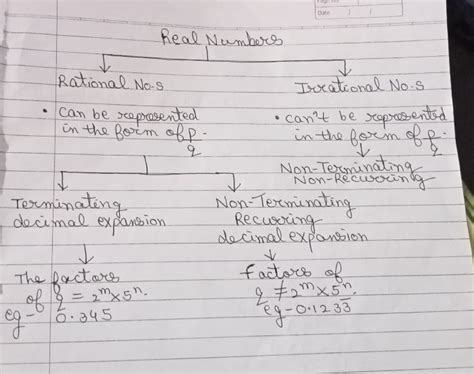 Page No
Date / /
Real Numbers
Rational No.s
Irrational No.s
• Can be represented
in the form of p/q.
• can't be represented
in the form of p/q.
Non-Terminating
Non-Recurring
Terminating
decimal expansion
Non-Terminating
Recurring
decimal expansion
The factors
of q = 2^m x 5^n.
eg- 0.345
Factors of
q ≠ 2^m x 5^n.
eg- 0.1233